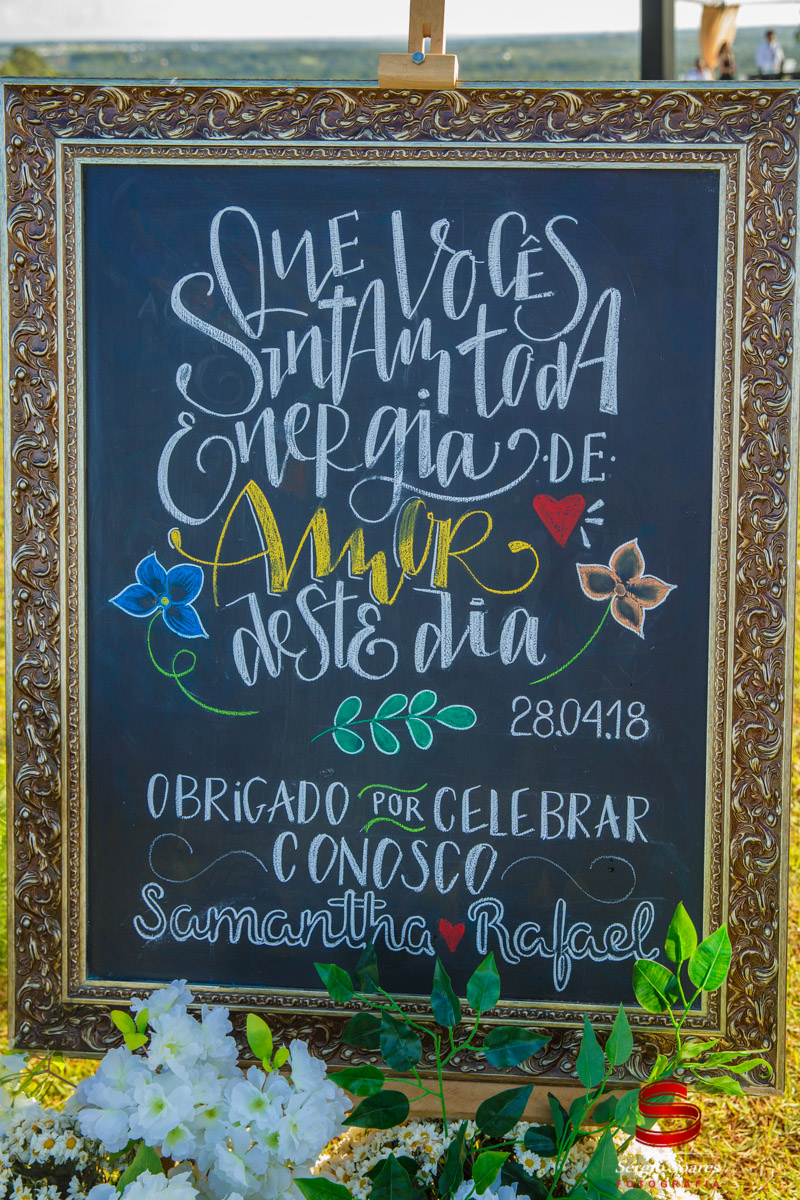 QUE VOCÊS
SintAm todA
Energia DE
Amor
deste dia
28.04.18
OBRiGADO POR CELEBRAR
CONOSCO
Samantha Rafael
S
Sergio Soares
FOTOGRAFIA